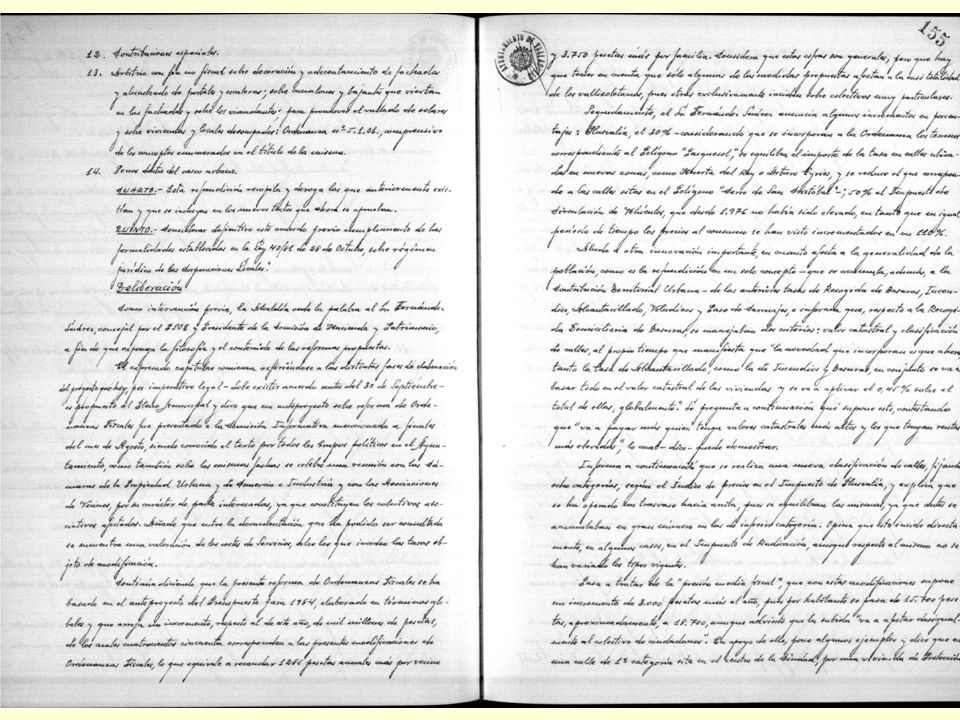 12. Contribuciones especiales.
13. Arbitrio con fin no fiscal sobre decoración y adecentamiento de fachadas
y alumbrado de portales y escaleras; sobre canalones y bajantes que viertan
en las fachadas y sobre los viandantes; para promover el vallado de solares
y sobre viviendas y locales desocupados: Ordenanza nº 5.1.01, comprensivo
de los conceptos enumerados en el título de la misma.
14. Perros dentro del casco urbano.
CUARTO.- Esta refundición recopila y deroga las que anteriormente exis-
tían y que se incluyen en los nuevos textos que ahora se aprueban.
QUINTO.- Considerar definitivo este acuerdo previo cumplimiento de las
formalidades establecidas en la Ley 40/81 de 28 de Octubre, sobre régimen
jurídico de las Corporaciones Locales".
Deliberación
Como intervención previa, la Alcaldía cede la palabra al Sr. Fernández
Suárez, concejal por el PSOE y Presidente de la Comisión de Hacienda y Patrimonio,
a fin de que exponga la filosofía y el contenido de las reformas propuestas.
El expresado capitular comienza refiriéndose a las distintas fases de elaboración
del proyecto que hoy, por imperativo legal -debe existir acuerdo antes del 30 de Septiembre-
es propuesto al Pleno Municipal y dice que un anteproyecto sobre reforma de Orde-
nanzas Fiscales fue presentado a la Comisión Informativa mencionada a finales
del mes de Agosto, siendo conocido el texto por todos los Grupos políticos en el Ayun-
tamiento, como también sobre las mismas fechas se celebró una reunión con las Cá-
maras de la Propiedad Urbana y de Comercio e Industria y con las Asociaciones
de Vecinos, por su carácter de partes interesadas, ya que constituyen los colectivos aso-
ciativos afectados. Añade que entre la documentación que ha podido ser consultada
se encuentra una valoración de los costes de Servicios, sobre los que inciden las tasas ob-
jeto de modificación.
Continúa diciendo que la presente reforma de Ordenanzas Fiscales se ha
basado en el anteproyecto del Presupuesto para 1984, elaborado en términos glo-
bales y que arroja un incremento, respecto al de este año, de mil millones de pesetas,
de los cuales cuatrocientos cincuenta corresponden a las presentes modificaciones de
Ordenanzas Fiscales, lo que equivale a recaudar 1286 pesetas anuales más por vecino
AYUNTAMIENTO DE VALLADOLID
155
y 3.750 pesetas más por familia. Considera que estas cifras son generales, pero que hay
que tener en cuenta que sólo algunas de las medidas propuestas afectan a la casi totalidad
de los vallisoletanos, pues otras exclusivamente inciden sobre colectivos muy particulares.
Seguidamente, el Sr. Fernández Suárez anuncia algunos incrementos en porcen-
tajes: Plusvalía, el 20% -considerando que se incorporan a la Ordenanza los terrenos
correspondientes al Polígono "Parquesol", se equilibra el importe de la tasa en calles ubica-
das en nuevas zonas, como Huerta del Rey o Arturo Eyries, y se reduce el que correspon-
de a las calles sitas en el Polígono "Cerro de San Cristóbal"-; 50% el Impuesto de
Circulación de Vehículos, que desde 1.976 no había sido elevado, en tanto que en igual
período de tiempo los precios al consumo se han visto incrementados en un 220%.
Alude a otra innovación importante, en cuanto afecta a la generalidad de la
población, como es la refundición en un solo concepto -que se acumula, además, a la
Contribución Territorial Urbana- de las anteriores tasas de Recogida de Basuras, Incen-
dios, Alcantarillado, Miradores y Paso de Carruajes, e informa que, respecto a la Recogi-
da Domiciliaria de Basuras, se manejaban dos criterios: valor catastral y clasificación
de calles, al propio tiempo que manifiesta que "la novedad que incorporan es que ahora
tanto la tasa de Alcantarillado como la de Incendios y Basuras, en conjunto se va a
basar todo en el valor catastral de las viviendas y se va a aplicar el 0,45% sobre el
total de ellas, globalmente". Se pregunta a continuación qué supone esto, contestando
que "va a pagar más quien tenga valores catastrales más altos y los que tengan rentas
más elevadas", lo cual -dice- puede demostrar.
Informa a continuación que se realiza una nueva clasificación de calles, fijando
ocho categorías, según el Indice de precios en el Impuesto de Plusvalía, y explica que
se ha operado un trasvase hacia arriba, pues se equilibran las mismas, ya que antes se
acumulaban en gran número en las de inferior categoría. Opina que esto incide directa-
mente, en algunos casos, en el Impuesto de Radicación, aunque respecto al mismo no se
han variado los tipos vigentes.
Pasa a tratar de la "presión media fiscal", que con estas modificaciones supone
un incremento de 3.000 pesetas más al año, pues por habitante se pasa de 15.700 pese-
tas, aproximadamente, a 18.700, aunque advierte que la subida "va a afectar desigual-
mente al colectivo de ciudadanos". En apoyo de ello, pone algunos ejemplos y dice que en
una calle de 1ª categoría sita en el centro de la Ciudad, por una vivienda de Protección